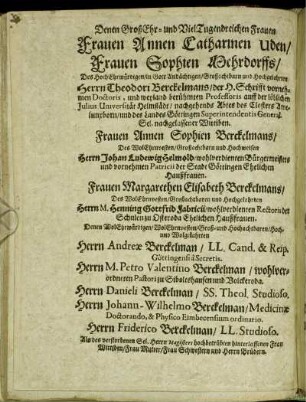 Denen GroßEhr- und VielTugendreichen Frauen
Frauen Annen Catharinen Uden/
Frauen Sophien Mehrdorffs/
Des HochEhrwürdigen/in Gott Andächtigen/Großachtbarn und Hochgelehrten
Herrn Theodori Berckelmans/der H. Schrifft vorneh-
men Doctoris, und weyland berühmten Professoris auff der löblichen
Julius Universität Helmstädt/ nachgehends Abtes des Closters Ame-
lunxborn/und des Landes Göttingen Superintendentis General.
Sel. nachgelassener Wittiben.
Frauen Annen Sophien Berckelmans/
Des WolEhrnvesten/Großachtbarn und Hochweisen
Herrn Johan Ludewig Helmold/wohlverdienten Bürgermeisters
und vornehmen Patricii der Stadt Göttingen Ehelichen
Haußfrauen.
Frauen Margarethen Elisabeth Berckelmans/
Des WolEhrnvesten/Großachtbaren und Hochgelehrten
Herrn M. Henning Gottfrid Fabricii/wohlverdienten Rectoris der
Schulen zu Osterode Ehelichen Haußfrauen.
Denen WolEhrwürdigen/WolEhrnvesten/Groß- und Hochachtbaren/Hoch-
und Wolgelahrten
Herrn Andreæ Berckelman/ LL. Cand. & Reip.
Göttingensis Secretis.
Herrn M. Petro Valentino Berckelman/ wohlver-
ordneten Pastori zu Sebalexhausen und Bolckeroda.
Herrn Danieli Berckelman/ SS. Theol. Studioso.
Herrn Johann-Wilhelmo Berckelman/Medicinæ
Doctorando, & Physico Eimbeccensium ordinario.
Herrn Friderico Berckelman/ LL. Studioso.
Als des verstorbenen Sel. Herrn Magisters hochbetrübten hinterlassenen Frau
Wittiben/Frau Mutter/Frau Schwestern und Herrn Brüdern.